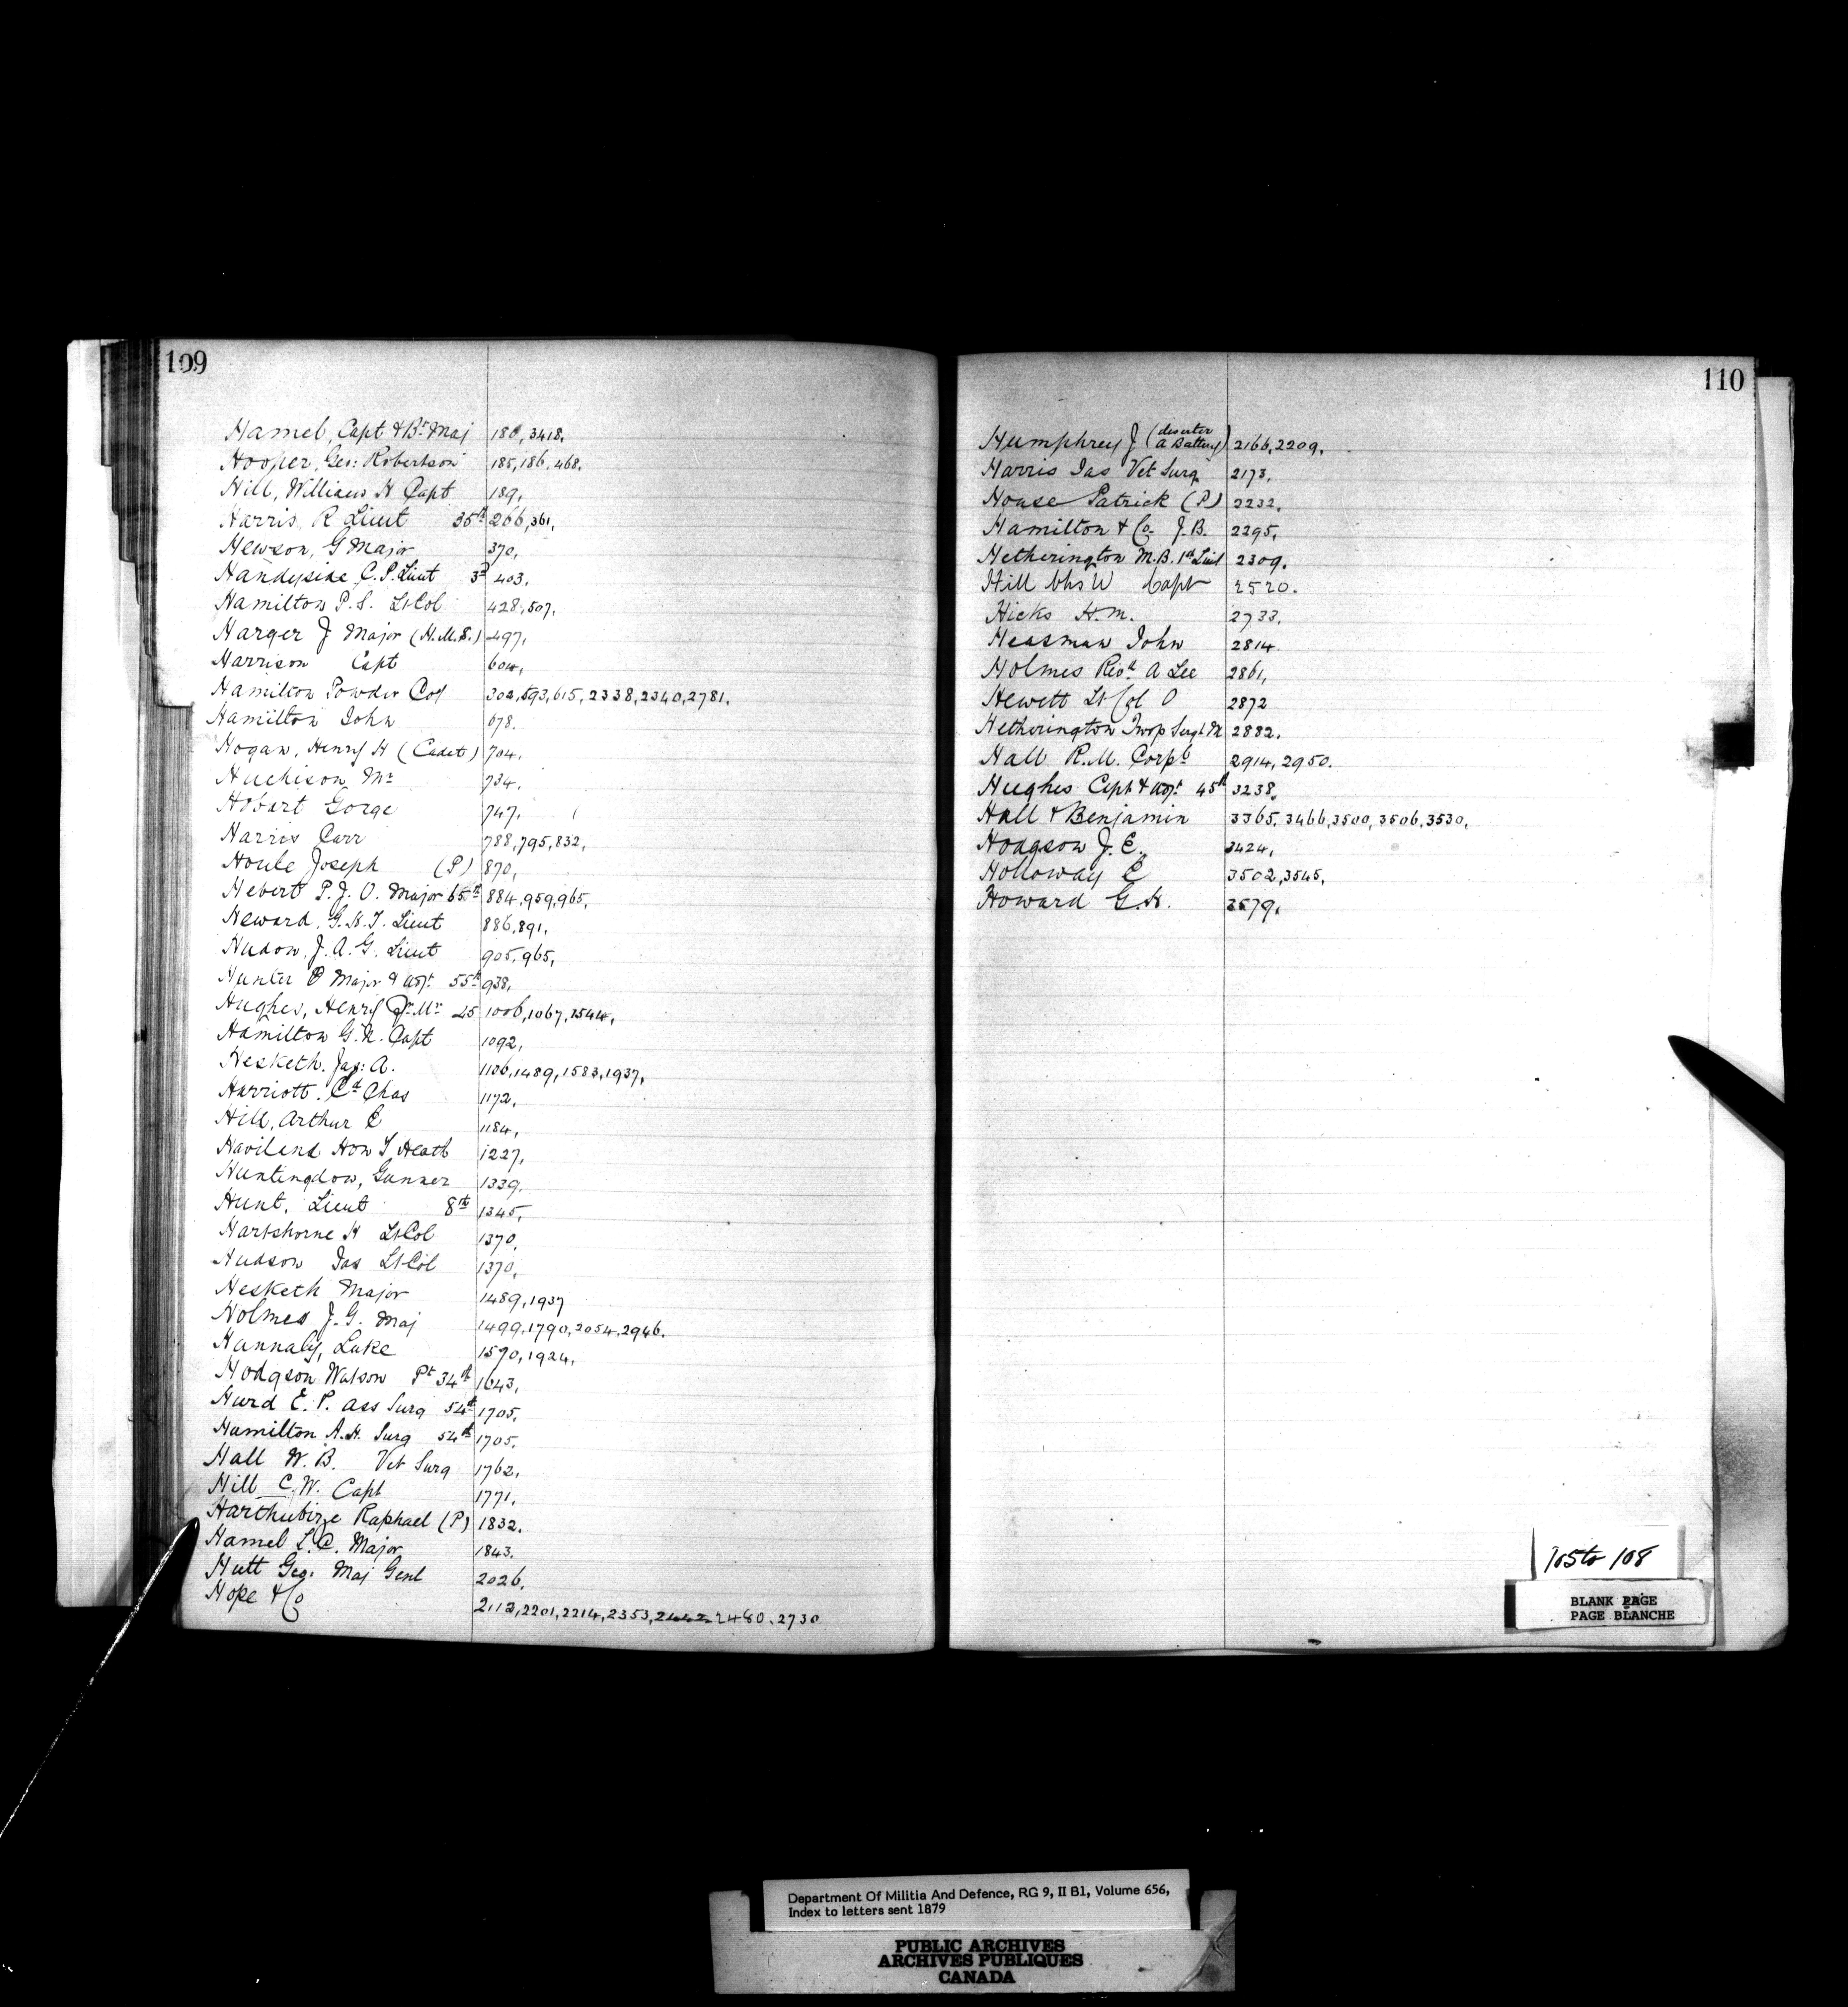 109
Hamel, Capt & Bt Maj 180, 3418,
Hooper, Geo: Robertson 185, 186, 468,
Hill, William H Capt 189,
Harris, R Lieut 35th 266, 361,
Hewson, G Major 370,
Handyside C. P. Lieut 3d 403,
Hamilton P. S. Lt Col 428, 507,
Harger J Major (H.M.S.) 497,
Harrison Capt 604,
Hamilton Powder Coy 302, 593, 615, 2338, 2340, 2781,
Hamilton John 678.
Hogan, Henry H (Cadet) 704,
Huchison Mr 734,
Hobart Gorge 747,
Harris Carr 788, 795, 832,
Houle Joseph (P) 870,
Hebert P. J. O. Major 65th 884, 959, 965,
Heward, G. H. T. Lieut 886, 891,
Hudon, J. A. G. Lieut 905, 965,
Hunter Major & Adjt 55th 938,
Hughes, Henry Qr. Mr 25 1006, 1067, 1544,
Hamilton G. N. Capt 1092,
Hesketh. Jas: A. 1106, 1489, 1583, 1937,
Harriott. Ct Chas 1172,
Hill, Arthur E 1184,
Haviland Hon T. Heath 1227,
Huntingdon, Gunner 1339,
Hunt, Lieut 8th 1345,
Hartshorne H Lt Col 1370,
Hudson Jas Lt Col 1370,
Hesketh Major 1489, 1937
Holmes J. G. Maj 1499, 1790, 2054, 2946.
Hannaly, Luke 1570, 1924,
Hodgson Watson Pt 34th 1643,
Hurd E. P. Ass Surg 54th 1705,
Hamilton A. H. Surg 54th 1705,
Hall W. B. Vet Surg 1762,
Hill C. W. Capt 1771,
Harthubize Raphael (P) 1832.
Hamel L. C. Major 1843,
Hutt Geo. Maj Genl 2026,
Hope & Co 2112, 2201, 2214, 2353, 2442, 2480, 2730
110
Humphrey J (deserter A Battery) 2166, 2209,
Harris Jas Vet Surg 2173,
House Patrick (P) 2232,
Hamilton & Co J. B. 2295,
Hetherington M. B. 1st Lieut 2309,
Hill Chs W Capt 2520.
Hicks H. M. 2733,
Heasman John 2814.
Holmes Revd A Lee 2861,
Hewett Lt Col O 2872
Hetherington Troop Sergt M 2882.
Hall R. M. Corpl 2914, 2950.
Hughes Capt & Adjt 45th 3238,
Hall & Benjamin 3365, 3466, 3500, 3506, 3530,
Hodgson J. E. 3424,
Holloway E 3502, 3545,
Howard G. H. 3579,
105 to 108
BLANK PAGE
PAGE BLANCHE
Department Of Militia And Defence, RG 9, II B1, Volume 656,
Index to letters sent 1879
PUBLIC ARCHIVES
ARCHIVES PUBLIQUES
CANADA